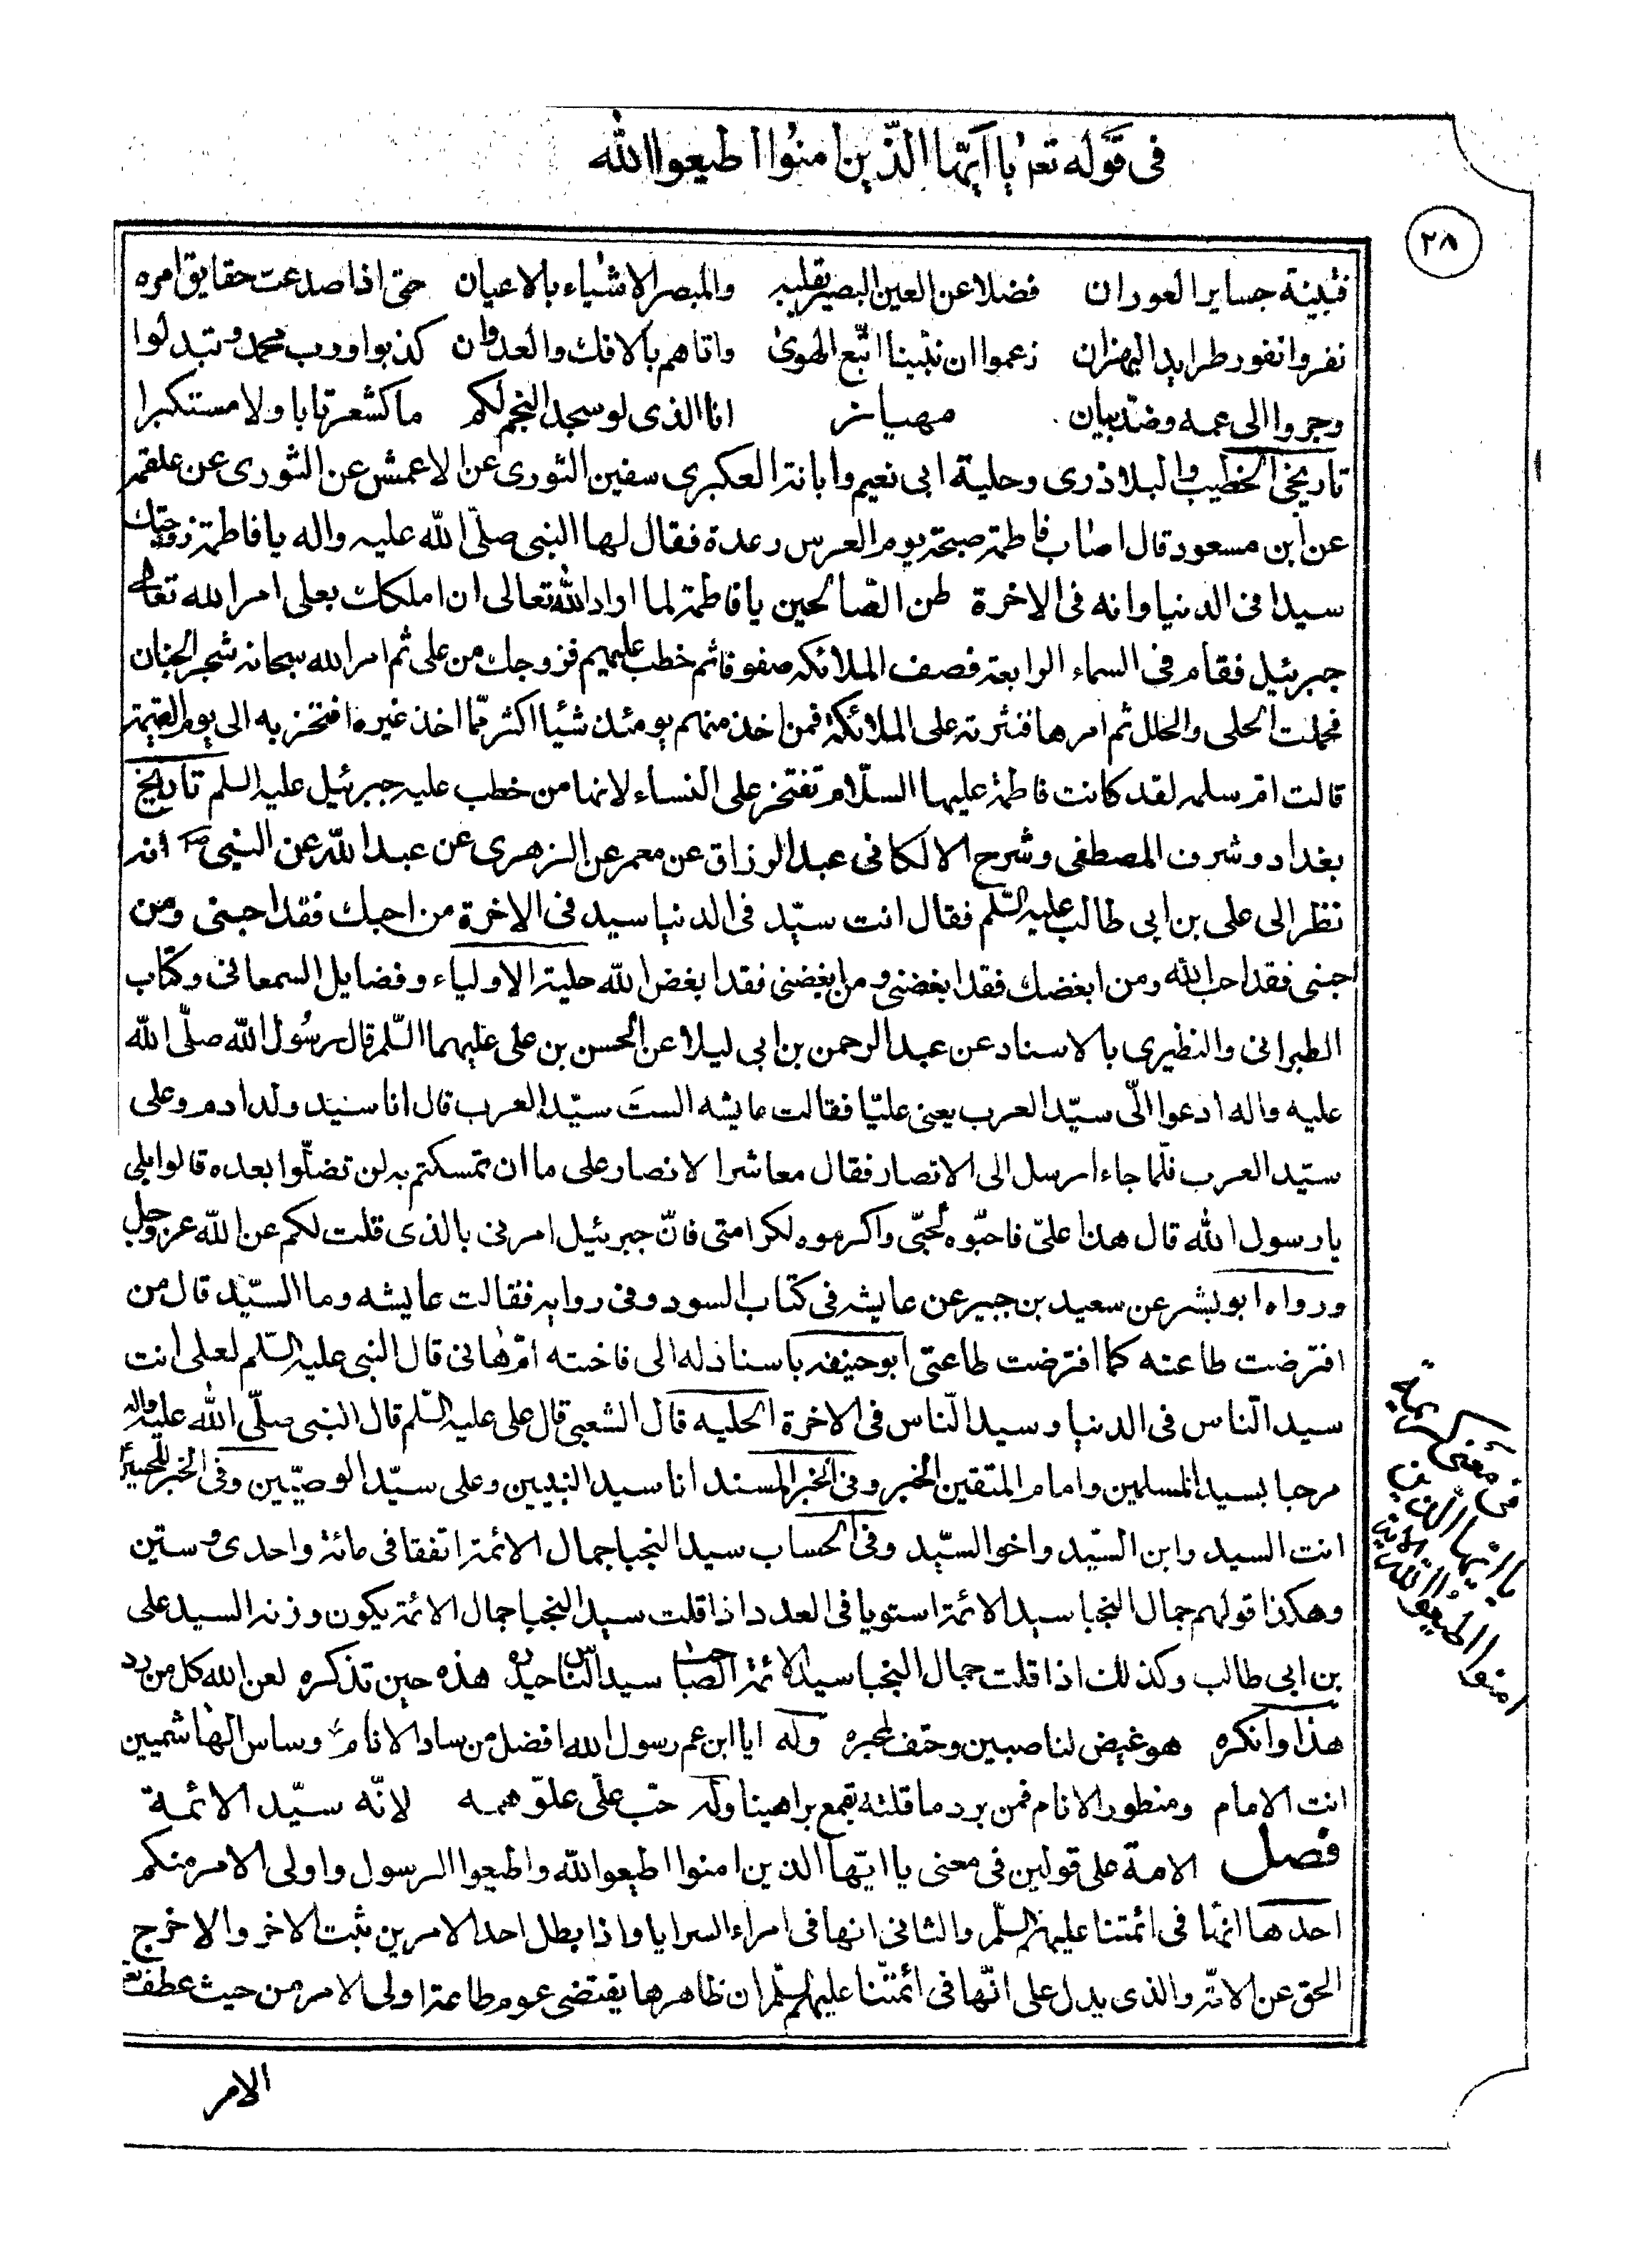 فى قوله تعم يا ايّها الذّين امنوا اطيعوا الله
٢٨
فتبينة جساير العوران فضلا عن العين البصير بقلبه والمبصر الاشياء بالاعيان حتى اذا صدعت حقايق امره
نفروا نفور طرايد البهزان زعموا ان نبينا اتّبع الهوى واتاهم بالافك والعدوان كذبوا ورب محمد وتبدلوا
وجروا الى عمه وضد بيان مهيار انا الذى لو سجد النجم لكم ما كشعر تابا ولا مستكبرا
تاريخى الخطيب والبلاذرى وحلية ابى نعيم وابانة العكبرى سفين الثورى عن الاعمش عن الثورى عن علقمة
عن ابن مسعود قال اصاب فاطمة صبحة يوم العرس رعدة فقال لها النبى صلّى الله عليه واله يا فاطمة زوجتك
سيدا فى الدنيا وانه فى الاخرة لمن الصّالحين يا فاطمة لما اراد الله تعالى ان املكك بعلى امر الله تعالى
جبرئيل فقام فى السماء الرابعة فصف الملائكه صفوفا ثم خطب عليهم فزوجك من على ثم امر الله سبحانه شجر الجنان
فحملت الحلى والحلل ثم امرها فنثرته على الملائكة فمن اخذ منهم يومئذ شيئا اكثر ممّا اخذ غيره افتخر به الى يوم القيمة
قالت ام سلمه لقد كانت فاطمة عليها السلّام تفتخر على النساء لانها من خطب عليه جبرئيل عليه السلم تاريخ
بغداد وشرف المصطفى وشرح الالكانى عبد الرزاق عن معمر عن الزهرى عن عبد الله عن النبى ص انه
نظر الى على بن ابى طالب عليه السّلم فقال انت سيّد فى الدنيا سيد فى الاخرة من احبك فقد احبنى ومن
احبنى فقد احب الله ومن ابغضك فقد ابغضنى ومن ابغضنى فقد ابغض الله حلية الاولياء وفضايل السمعانى وكتاب
الطبرانى والنظيرى بالاسناد عن عبد الرحمن بن ابى ليلا عن الحسن بن على عليهما السّلم قال رسول الله صلّى الله
عليه واله ادعوا الىّ سيّد العرب يعنى عليّا فقالت عايشه الست سيّد العرب قال انا سيد ولد ادم وعلى
سيّد العرب فلمّا جاء ارسل الى الانصار فقال معاشر الانصار على ما ان تمسكتم به لن تضلّوا بعده قالوا بلى
يا رسول الله قال هذا علىّ فاحبّوه لحبّى واكرموه لكرامتى فانّ جبرئيل امرنى بالذى قلت لكم عن الله عز وجل
ورواه ابو بشر عن سعيد بن جبير عن عايشه فى كتاب السودد وفى روايه فقالت عايشه وما السيّد قال من
افترضت طاعته كما افترضت طاعتى ابو حنيفه باسناد له الى فاخته ام هانى قال النبى عليه السّلم لعلى انت
سيد النّاس فى الدنيا وسيد النّاس فى الاخرة الحليه قال الشعبى قال على عليه السّلم قال النبى صلّى الله عليه واله
مرحبا بسيد المسلمين وامام المتقين الخبر وفى الخبر المسند انا سيد النبيين وعلى سيّد الوصيّين وفى الخبر للحسين
انت السيد وابن السّيد واخو السيّد وفى الحساب سيد النجبا جمال الائمة اتفقا فى مائة واحدى وستين
وهكذا قولهم جمال النجبا سيد الائمة استويا فى العدد اذا قلت سيد النجبا جمال الائمة يكون وزنه السيد على
بن ابى طالب وكذلك اذا قلت جمال النجبا سيد الائمة الصاحب سيد النّاس حيدره هذه حين تذكره لعن الله كل من رد
هذا وانكره هو غيض لناصبين وحتف لمجبره وله ايا ابن عم رسول الله افضل من ساد الانام وساس الهاشميين
انت الامام ومنظور الانام فمن يرد ما قلته يقمع براهينا وله حبّ علىّ علوّ همه لانّه سيّد الائمة
فصل الامة على قولين فى معنى يا ايّها الذين امنوا اطيعو الله واطيعوا الرسول واولى الامر منكم
احدها انّها فى ائمتنا عليهم السّلم والثانى انها فى امراء السرايا واذا بطل احد الامرين ثبت الاخر والا خرج
الحق عن الامّة والذى يدل على انّها فى ائمتّنا عليهم السّلم ان ظاهرها يقتضى عموم طاعة اولى الامر من حيث عطف تع
الامر
فى معنى
يا ايّها الّذين
امنوا اطيعوا الله الاية